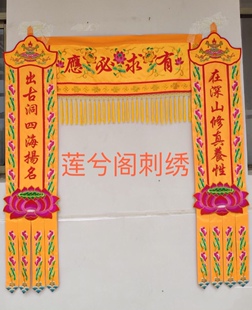 有求必應
在深山修真養性
出古洞四海揚名
莲兮阁刺绣